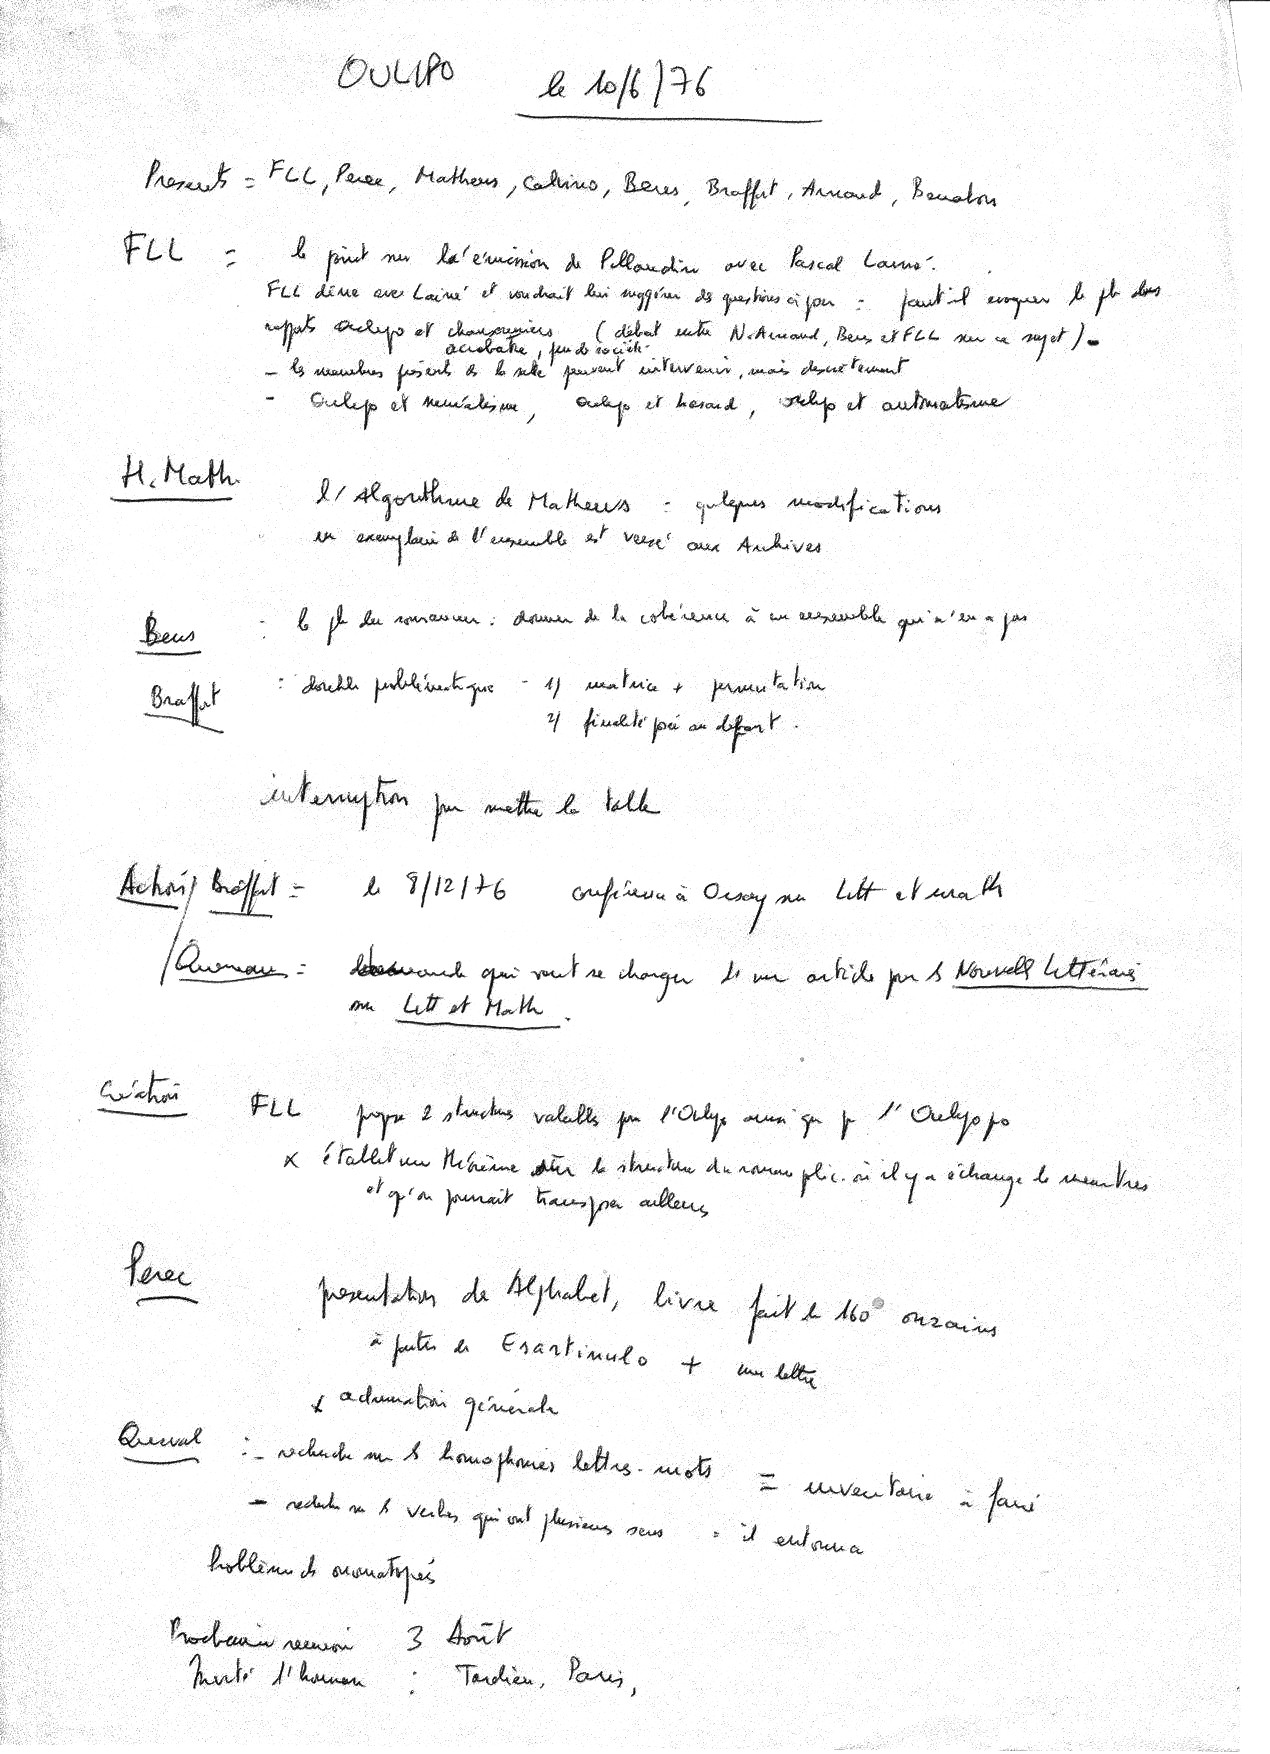 OULIPO le 10/6/76
Presents = FLL, Perec, Mathews, Calvino, Bens, Braffort, Arnaud, Benabou
FLL = le point sur l'émission de Pillaudin avec Pascal Lainé.
FLL dîne avec Lainé et voudrait lui suggérer des questions à poser = faut-il evoquer le pb des
rapports Oulipo et chansonniers (débat entre N. Arnaud, Bens et FLL sur ce sujet) -
acrobatie, jeu de société
- les membres présents ds la salle peuvent intervenir, mais discrètement
- Oulipo et surréalisme, Oulipo et hasard, oulipo et automatisme
H. Math.
l'Algorithme de Mathews = quelques modifications
un exemplaire de l'ensemble est versé aux Archives
Bens : le pb du romancier : donner de la cohérence à un ensemble qui n'en a pas
Braffort : double problématique - 1) matrice + permutation
2) finalité posée au départ.
interruption pour mettre la table
Action / Braffort = le 8/12/76 conférence à Orsay sur Litt et math
/ Queneau = demande qui veut se charger d'un article pour ls Nouvelles Littéraires
sur Litt et Math.
Création FLL propose 2 structures valables pour l'Oulipo ainsi que pr l'Oulipopo
x établit un théorème sur la structure du roman polic. où il y a échange de meurtres
et qu'on pourrait transposer ailleurs
Perec
présentation de Alphabet, livre fait de 160 onzains
à partir de Esartinulo + une lettre
x admiration générale
Queval : - recherche sur ls homophonies lettres-mots = inventaire à faire
- recherche sur ls verbes qui ont plusieurs sens = il entonna
Problème ds onomatopées
Prochaine reunion 3 Août
Invité d'honneur : Tardieu, Paris,